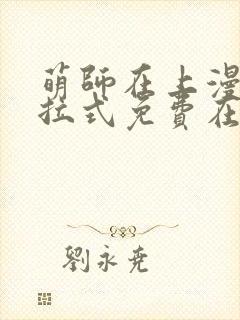 萌師在上漫
拉式免費在
劉永堯